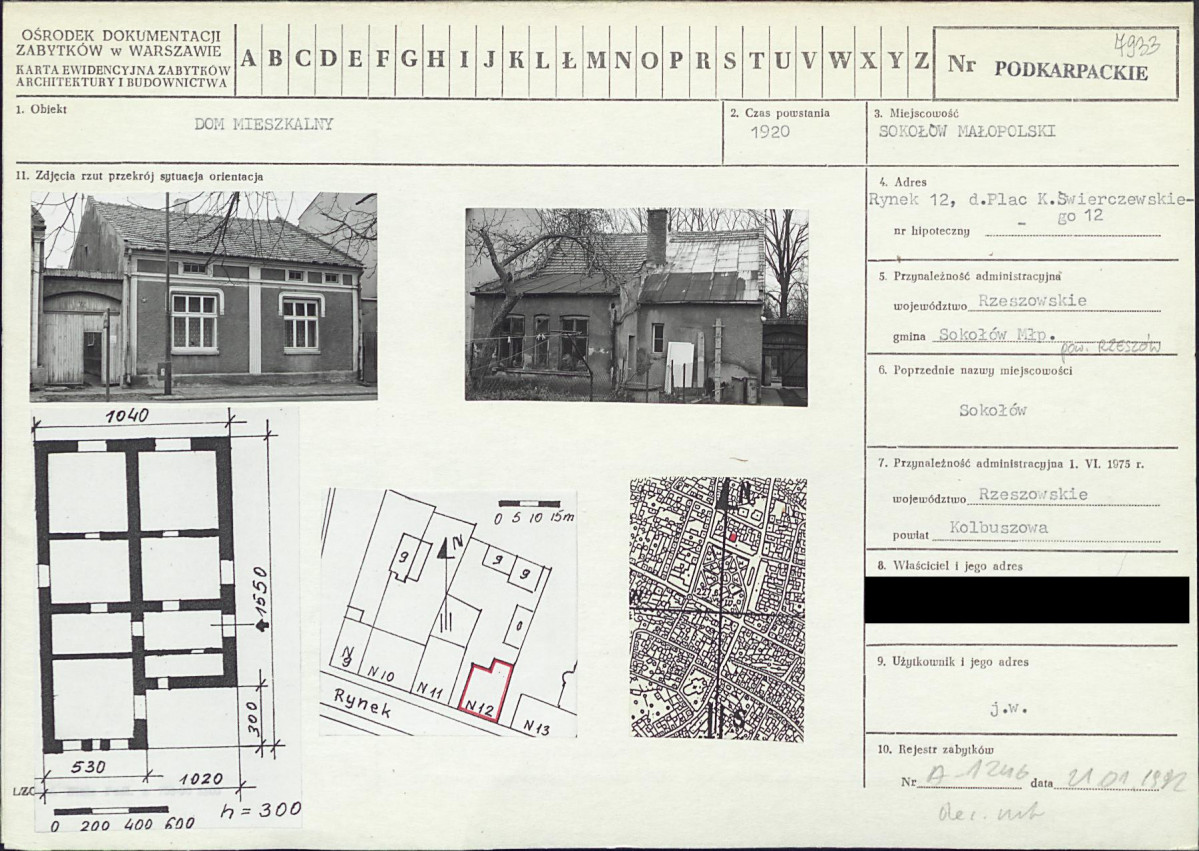 OŚRODEK DOKUMENTACJI
ZABYTKÓW w WARSZAWIE
KARTA EWIDENCYJNA ZABYTKÓW
ARCHITEKTURY I BUDOWNICTWA
A B C D E F G H I J K L Ł M N O P R S T U V W X Y Z
Nr PODKARPACKIE
7933
1. Obiekt
DOM MIESZKALNY
2. Czas powstania
1920
3. Miejscowość
SOKOŁÓW MAŁOPOLSKI
11. Zdjęcia rzut przekrój sytuacja orientacja
4. Adres
Rynek 12, d.Plac K.Świerczewskie-
go 12
nr hipoteczny
5. Przynależność administracyjna
województwo Rzeszowskie
gmina Sokołów Młp.
pow. RZESZÓW
6. Poprzednie nazwy miejscowości
Sokołów
7. Przynależność administracyjna 1. VI. 1975 r.
województwo Rzeszowskie
powiat Kolbuszowa
8. Właściciel i jego adres
9. Użytkownik i jego adres
j.w.
10. Rejestr zabytków
Nr A 1246 data 21.01.1992
1040
1550
300
530
1020
h = 300
0 200 400 600
0 5 10 15m
N
g
g
g
N 9
N 10
N 11
N 12
N 13
Rynek
N
S